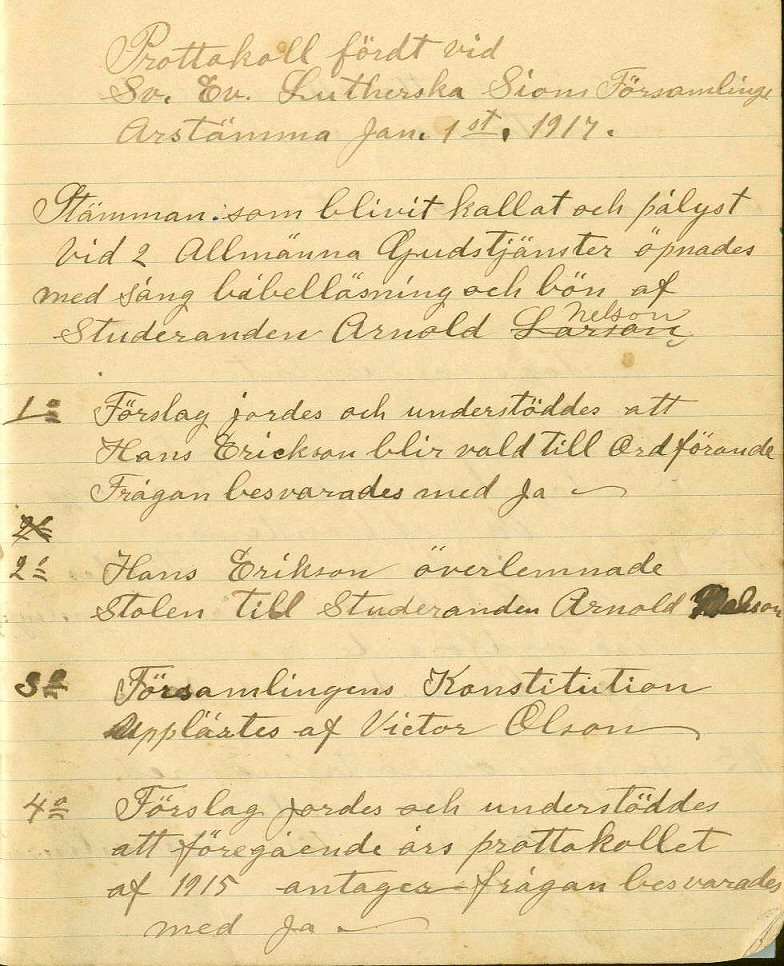 Prottokoll fördt vid
Sv. Ev. Lutherska Sions Församlings
Arstämma Jan. 1st, 1917.
Stämman som blivit kallat och pålyst
Vid 2 Allmänna Gudstjänster öpnades
med sång bibelläsning och bön af
Nelson
Studeranden Arnold Larson,
1o Förslag jordes och understöddes att
Hans Erickson blir vald till Ordförande
Frågan besvarades med Ja
2o
2o Hans Erikson överlemnade
Stolen till Studeranden Arnold Nelson
3o Församlingens Konstitution
Upplästes af Victor Olson
4o Förslag jordes och understöddes
att föregående års prottokollet
af 1915 antages - frågan besvarades
med Ja